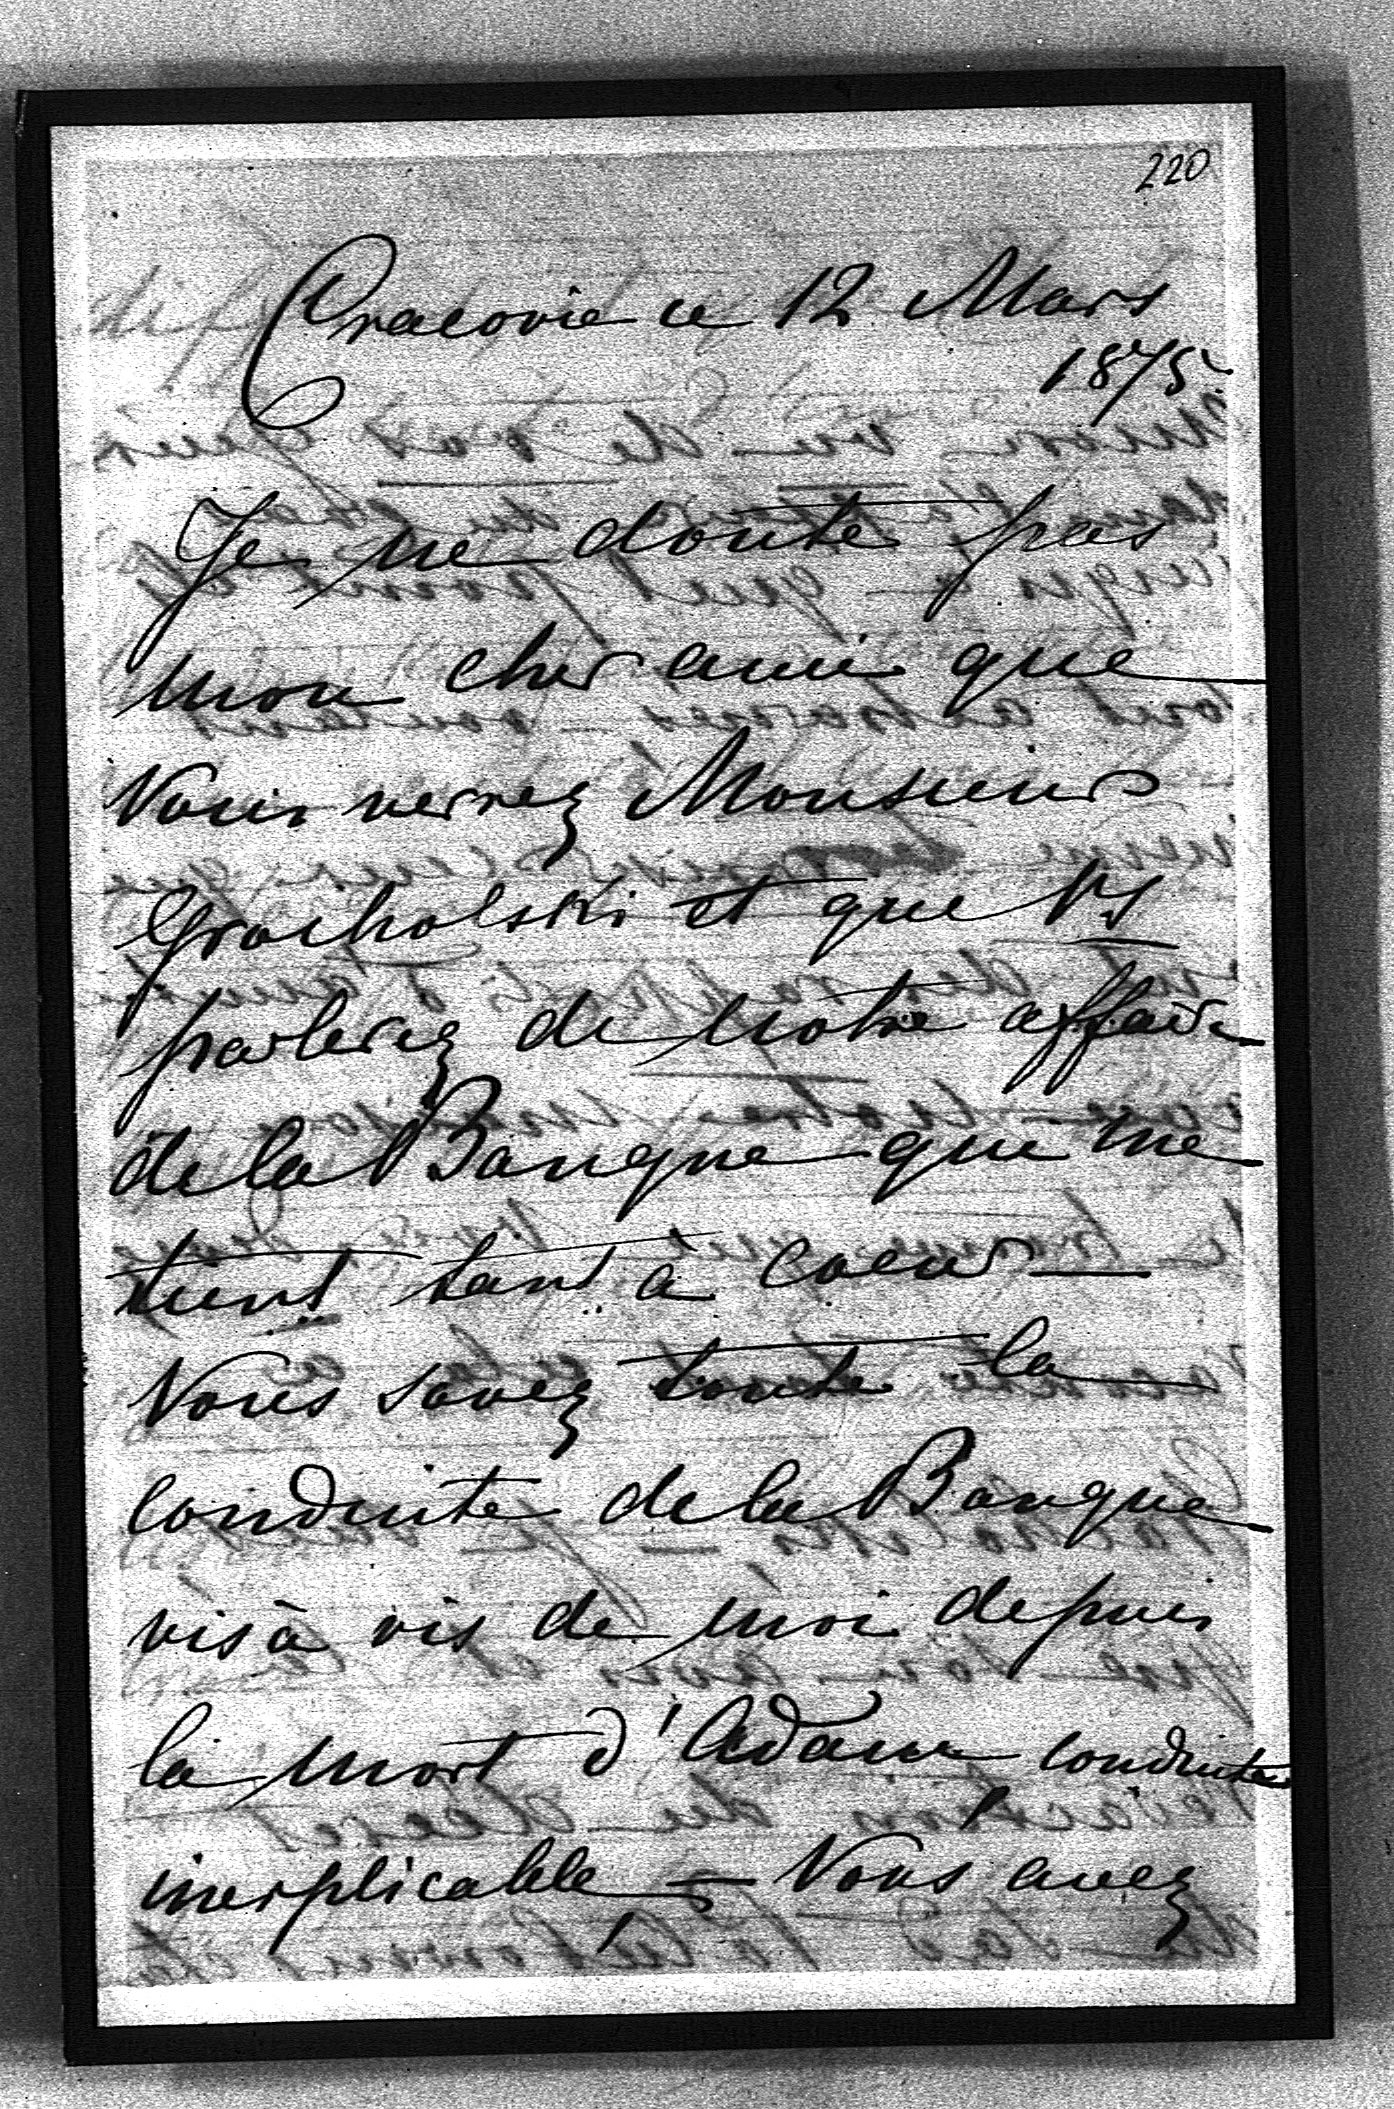 220
Cracovie ce 12 Mars
1875.
Je ne doute pas
mon cher ami que
Vous verrez Monsieur
Grocholski et que Vs
parlerez de notre affaire
de la Banque qui me
tient tant à coeur —
Vous savez toute la
conduite de la Banque
vis à vis de moi depuis
la mort d'Adam, conduite
inexplicable — Vous avez